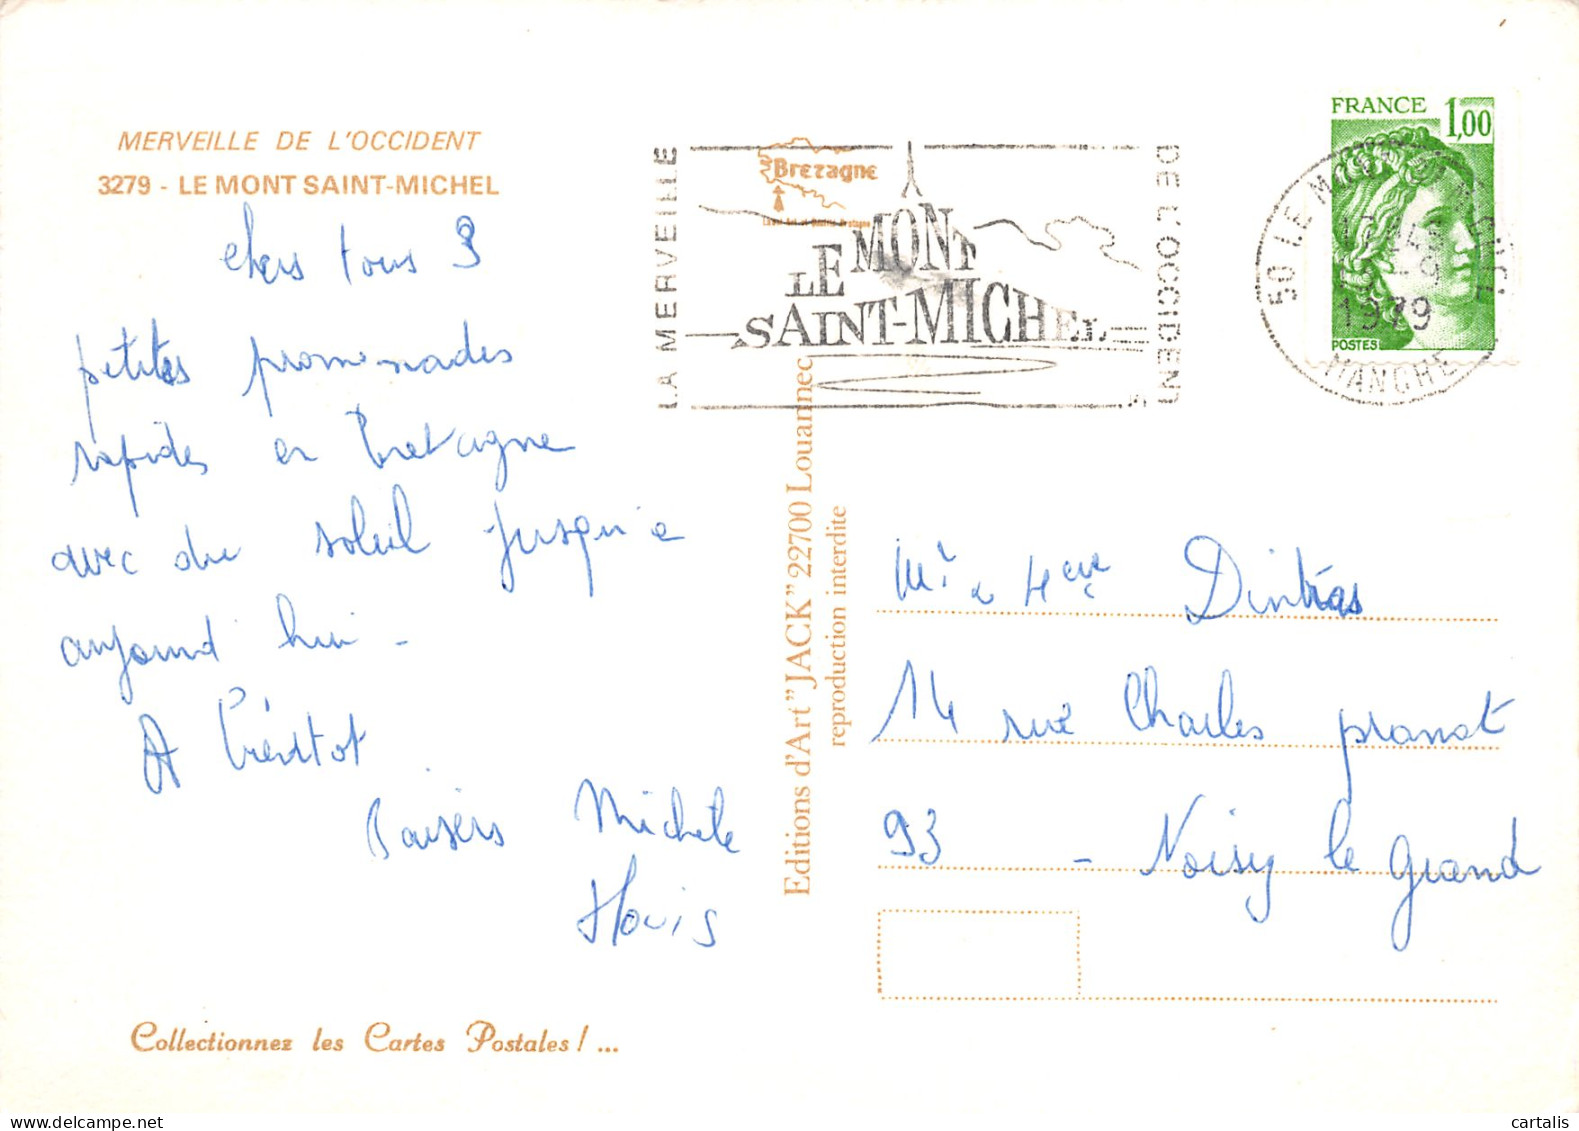 MERVEILLE DE L'OCCIDENT
3279 - LE MONT SAINT-MICHEL
chers tous 3
petites promenades
rapides en Bretagne
avec du soleil jusqu'a
aujourd'hui -
A Bientot
Baisers Michele
LA MERVEILLE
DE L'OCCIDENT
Bretagne
LE MONT
SAINT-MICHEL
FRANCE 1,00
POSTES
50 LE MONT ST MICHEL
1979
MANCHE
Editions d'Art "JACK" 22700 Louannec
reproduction interdite
Mr & Mme Dintras
14 rue Charles pranat
93 - Noisy le Grand
Collectionnez les Cartes Postales ! ...
cartalis